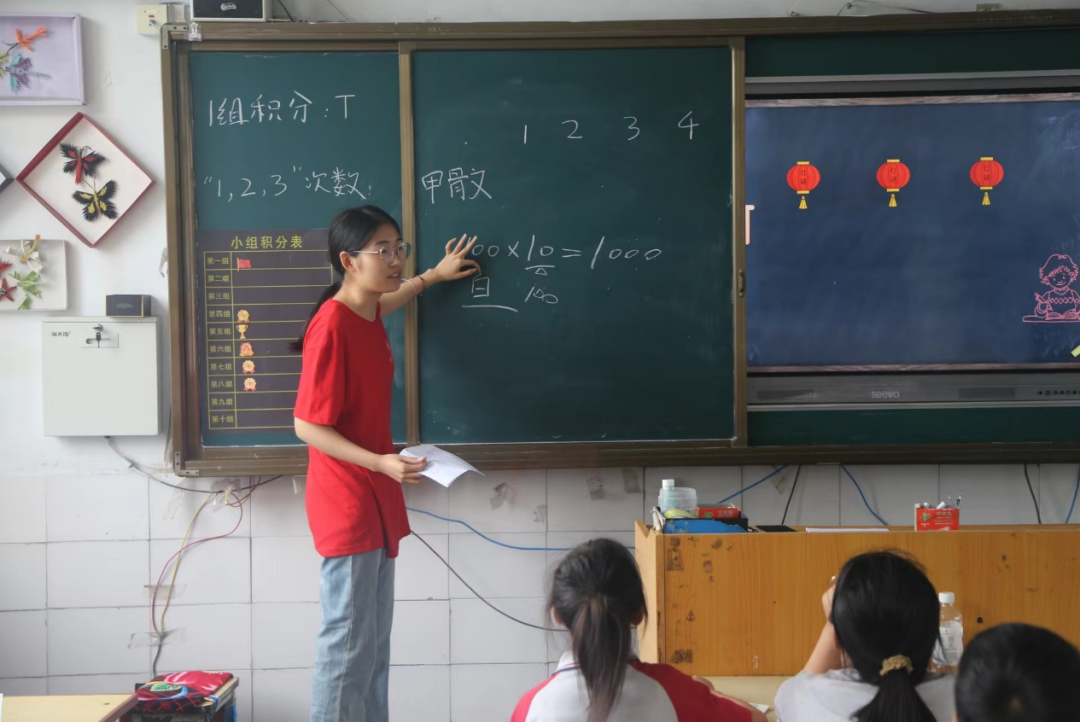 1组积分:T
"1,2,3"次数:
小组积分表
第一组
第二组
第三组
第四组
第五组
第六组
第七组
第八组
第九组
第十组
1 2 3 4
甲骨文
00×10=1000
百
100
seewo